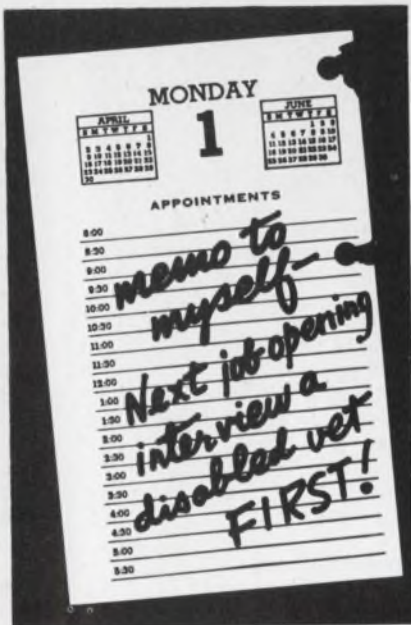 MONDAY
APRIL
1
JUNE
APPOINTMENTS
8:00
8:30
9:00
9:30
10:00
10:30
11:00
11:30
12:00
1:00
1:30
2:00
2:30
3:00
3:30
4:00
4:30
5:00
5:30
memo to
myself—
Next job opening
interview a
disabled vet
FIRST!